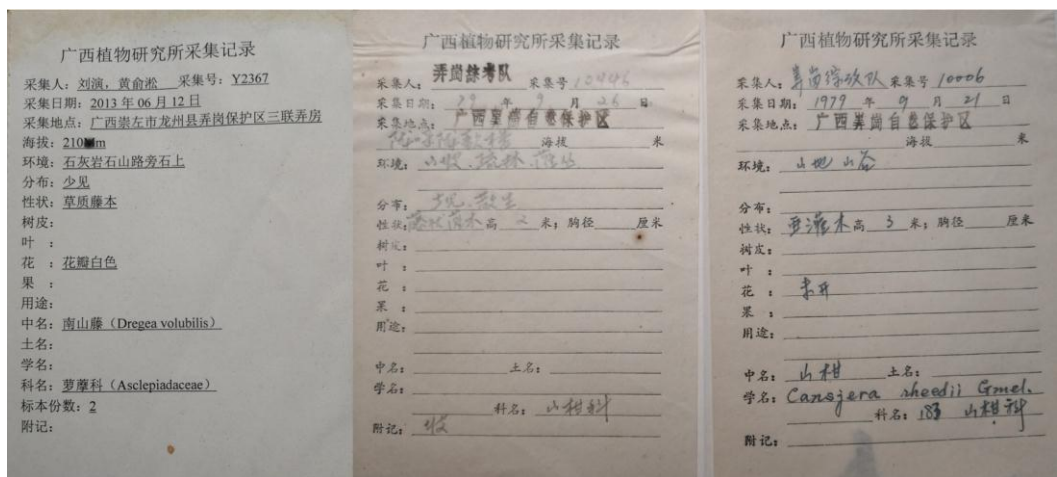 广西植物研究所采集记录
采集人：刘演，黄俞淞 采集号：Y2367
采集日期：2013年06月12日
采集地点：广西崇左市龙州县弄岗保护区三联弄房
海拔：210m
环境：石灰岩石山路旁石上
分布：少见
性状：草质藤本
树皮：
叶 ：
花 ：花瓣白色
果 ：
用途：
中名：南山藤（Dregea volubilis）
土名：
学名：
科名：萝藦科（Asclepiadaceae）
标本份数：2
附记：
广西植物研究所采集记录
采集人：弄岗综考队 采集号 10446
采集日期：79 年 9 月 26 日
采集地点：广西弄岗自然保护区
海拔 米
环境：山坡．疏林．
分布：散生
性状：灌木 高 2 米；胸径 厘米
树皮：
叶 ：
花 ：
果 ：
用途：
中名： 土名：
学名：
科名：山柑科
附记：
广西植物研究所采集记录
采集人：弄岗综考队 采集号 10006
采集日期：1979 年 9 月 21 日
采集地点：广西弄岗自然保护区
海拔 米
环境：山地 山谷
分布：
性状：亚灌木 高 3 米；胸径 厘米
树皮：
叶 ：
花 ：未开
果 ：
用途：
中名：山柑 土名：
学名：Cansjera rheedii Gmel.
科名：183 山柑科
附记：